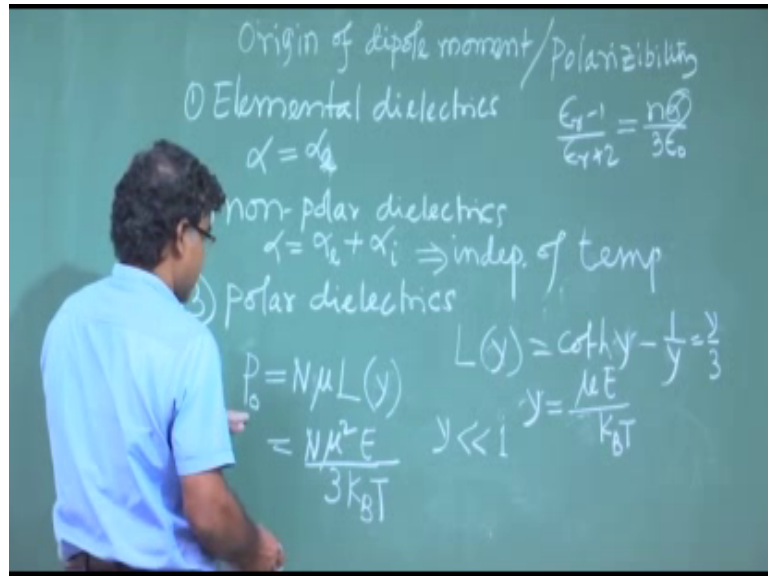 Origin of dipole moment/Polarizibility
① Elemental dielectrics
α = αe
(εr-1)/(εr+2) = nα/3ε0
) non-polar dielectrics
α = αe + αi ⇒ indep. of temp
3) Polar dielectrics
L(y) = coth y - 1/y = y/3
P0 = NμL(y)
y = μE/kBT
= Nμ²E/3KBT y << 1